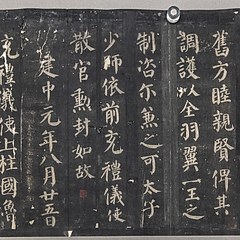 舊方睦親賢俾其
調護以全羽翼一王之
制咨尒兼之可太子
少師依前充禮儀使
散官勲封如故
建中元年八月廿五日
充禮儀使上柱國魯